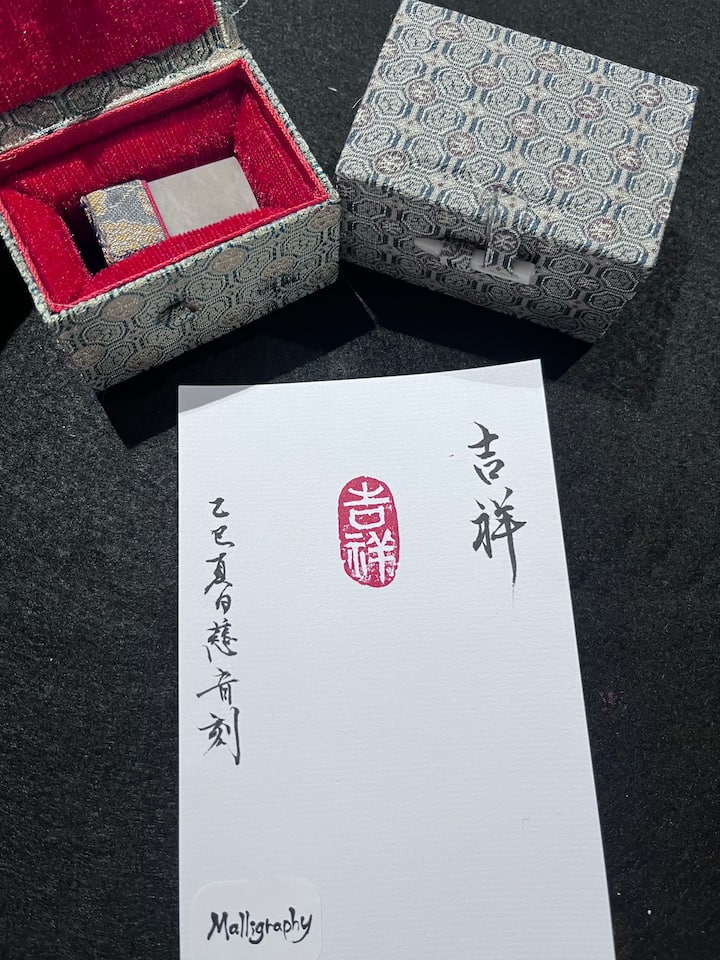 吉祥
吉祥
乙巳夏日慈音刻
Malligraphy